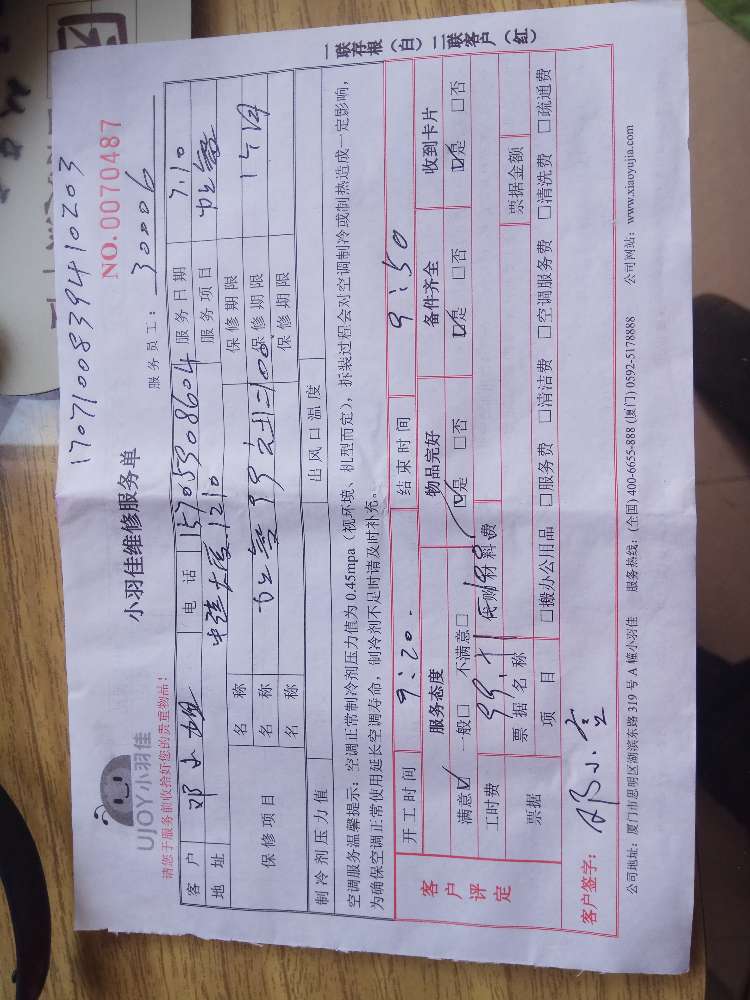 17071008394 10203
UJOY小羽佳
小羽佳维修服务单
NO.0070487
请您于服务前收拾好您的贵重物品!
服务员工: 30006
客户 邓小 电话 15705908604 服务日期 7.10
地址 大厦1210 服务项目
保修项目
名称 保修期限
名称 保修期限
名称 保修期限
制冷剂压力值 出风口温度
空调服务温馨提示:空调正常制冷剂压力值为 0.45mpa(视环境、机型而定),拆装过程会对空调制冷或制热造成一定影响,
为确保空调正常使用延长空调寿命,制冷剂不足时请及时补充。
客户评定
开工时间 9:20. 结束时间 9:50
服务态度 物品完好 备件齐全 收到卡片
满意☑ 一般□ 不满意□ ☑是 □否 ☑是 □否 ☑是 □否
工时费 99 代购材料费
票据 票据名称 票据金额
项目 □搬办公用品 □服务费 □清洁费 □空调服务费 □清洗费 □疏通费
客户签字:
公司地址:厦门市思明区湖滨东路 319 号 A 幢小羽佳 服务热线:(全国) 400-6655-888 (厦门) 0592-5178888 公司网站:www.xiaoyujia.com
一联存根(白)二联客户(红)